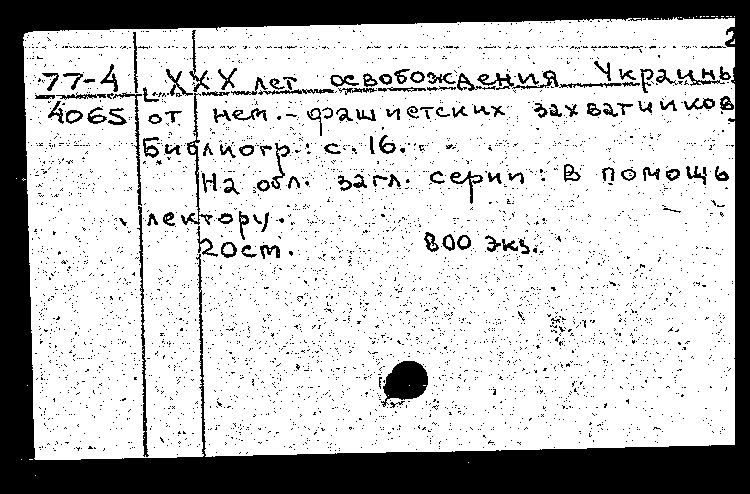 2
77-4 XXX лет освобождения Украины
4065 от нем.-фашистских захватчиков
Библиогр.: с. 16.
На обл. загл. серии: В помощь
лектору.
20 см. 800 экз.